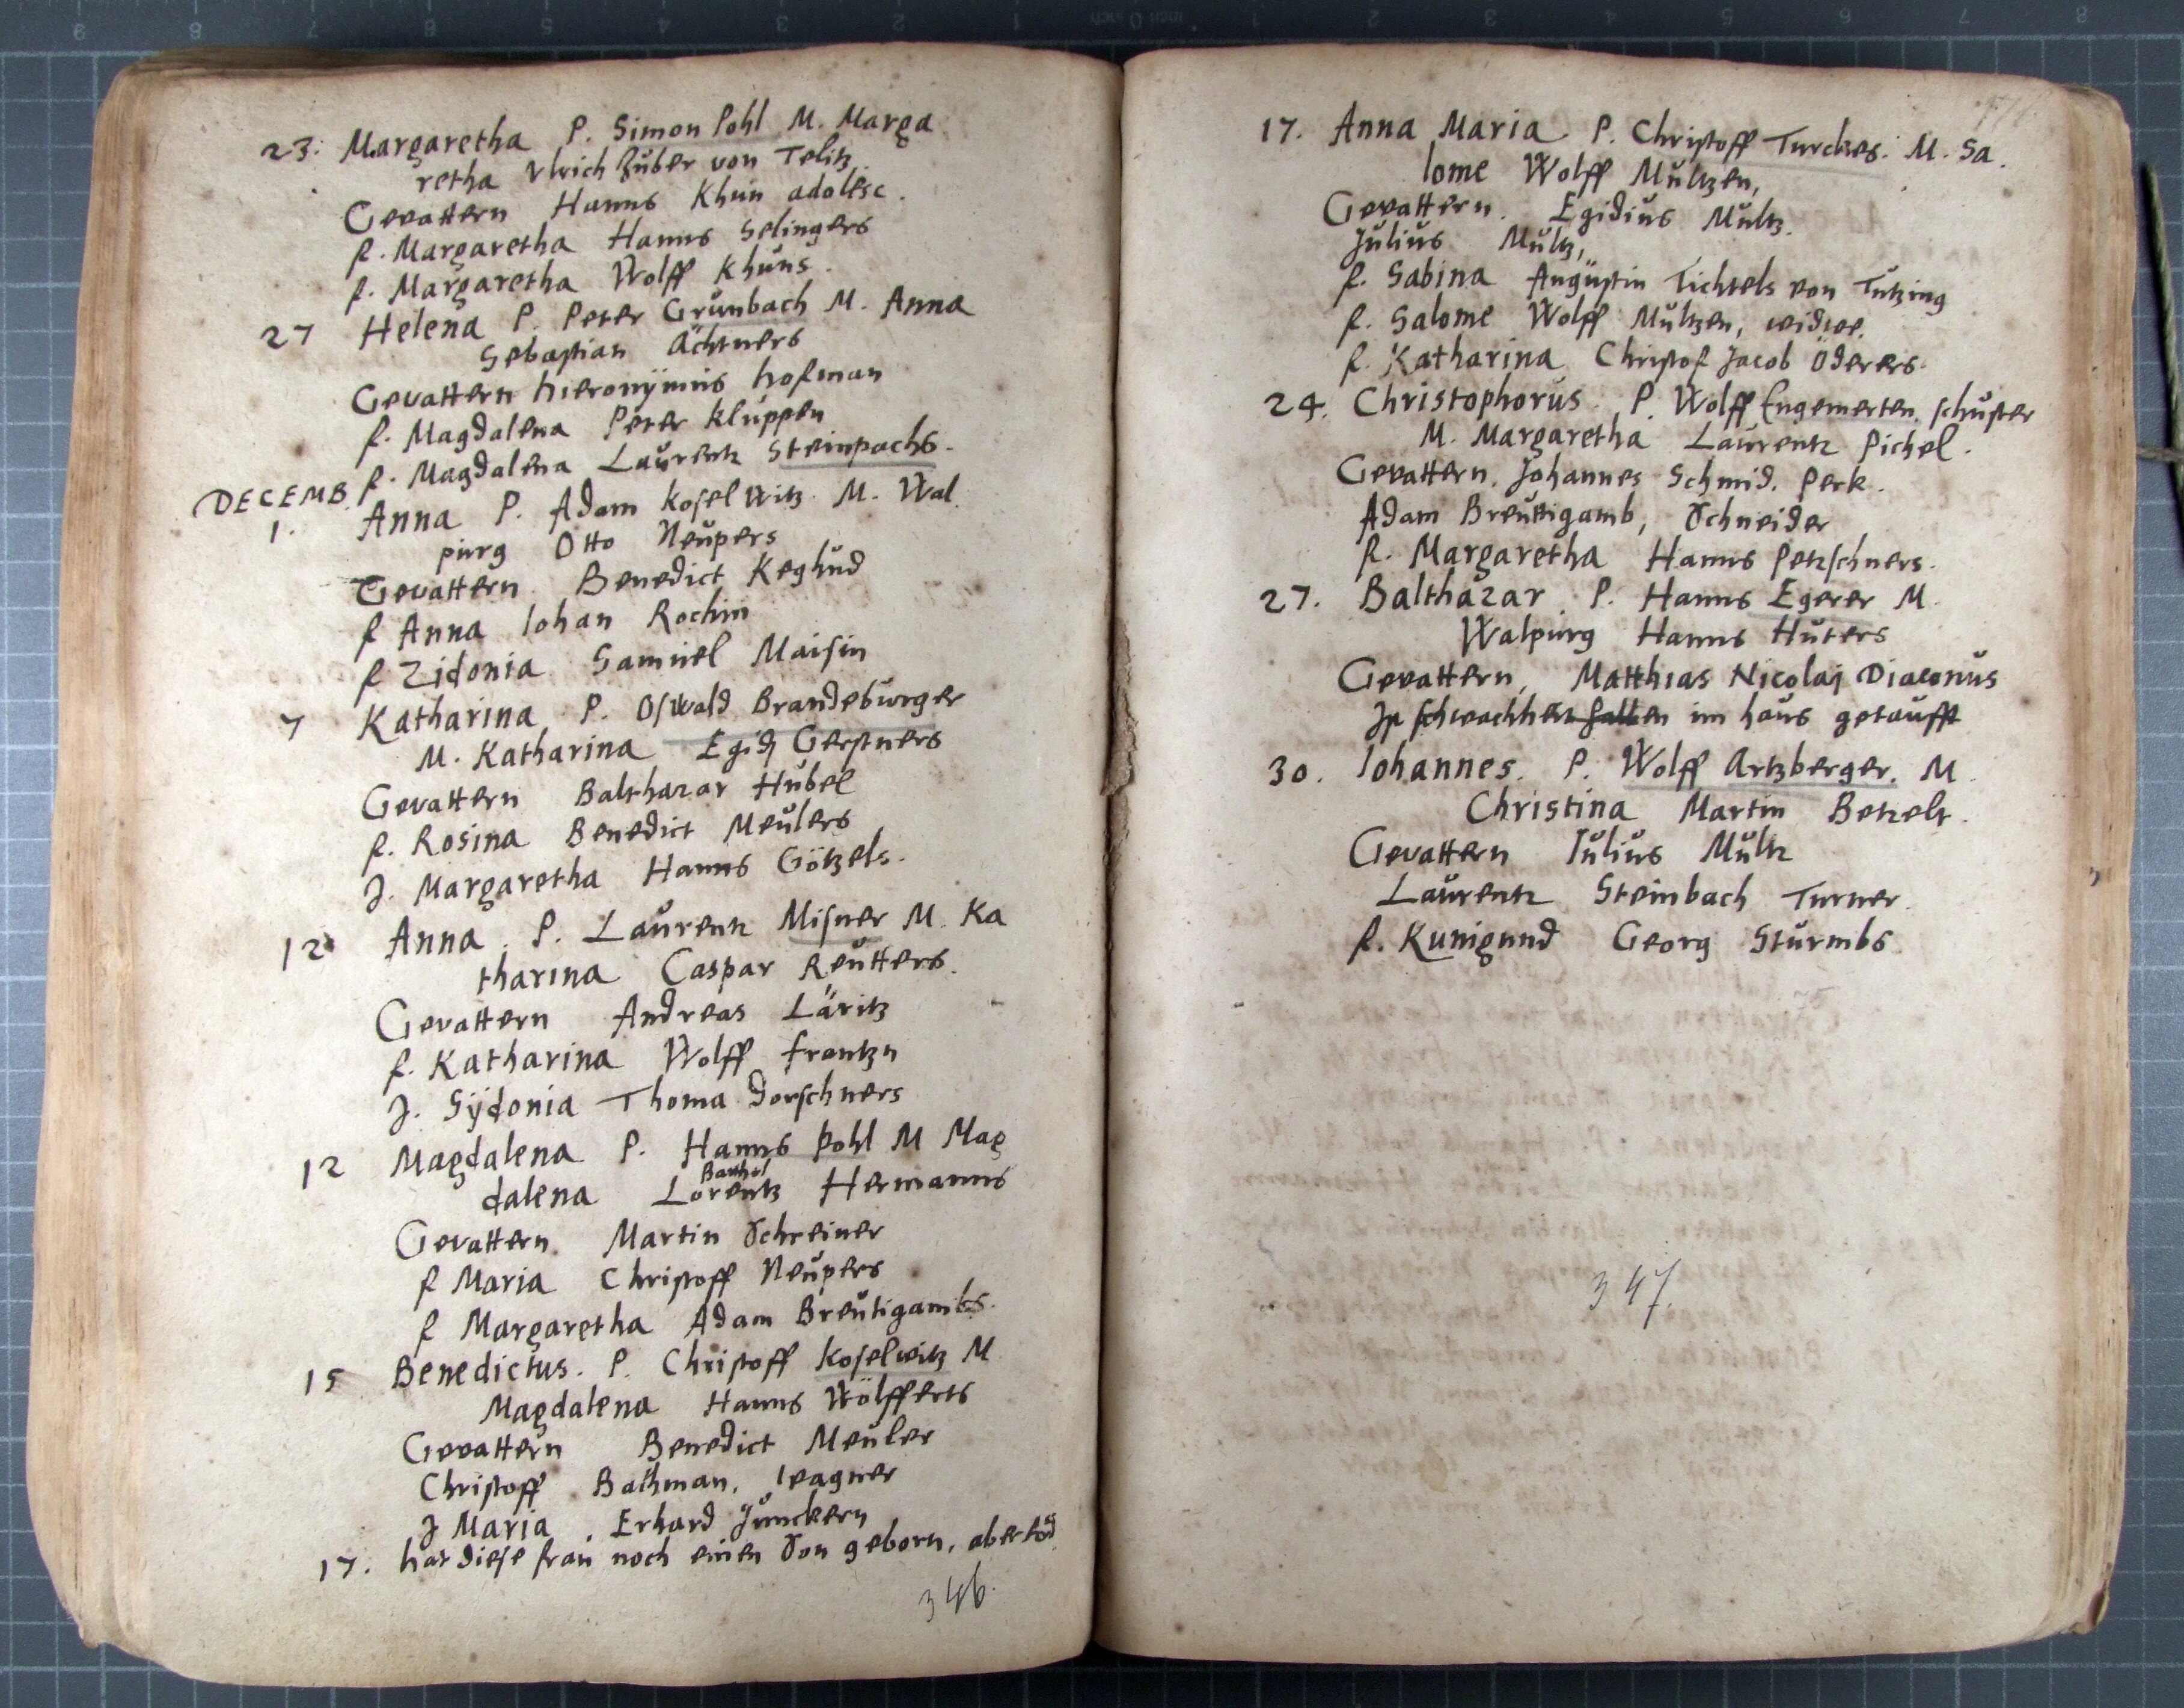 23. Margaretha P. Simon Pohl M. Marga
retha Vlrich Zuber von Telitz
Gevattern Hanns Khün adolesc.
f. Margaretha Hanns Selingers
f. Margaretha Wolff Khüns.
27 Helena P. Peter Grünbach M. Anna
Sebastian Achtners
Gevattern Hieronÿmüs Hofman
f. Magdalena Peter klüppen
f. Magdalena Laürentz Steinpachs.
DECEMB.
1. Anna P. Adam Koselwitz. M. Wal
pürg Otto Neüpers
Gevattern Benedict Keghüd
f Anna Iohan Rochin
f Zidonia Samüel Maisin
7 Katharina P. Oswald Brandebürger
M. Katharina Egidj Gerstners
Gevattern Balthazar Hübel
f. Rosina Benedict Meülers
J. Margaretha Hanns Götzels.
12 Anna. P. Laürentz Misner M. Ka
tharina Caspar Reütters.
Gevattern Andreas Läritz
f. Katharina Wolff frantzn
J. Sÿdonia Thoma Dorschners
12 Magdalena P. Hanns Pohl M Mag
Barthel
dalena Lorentz Hermanns
Gevattern Martin Schreiner
f Maria Christoff Neüpers
f Margaretha Adam Breütigambs.
15 Benedictus. P. Christoff Koselwitz M
Magdalena Hanns Wölfferts
Gevattern Benedict Meüler
Christoff Bachman, wagner
J Maria. Erhard Jünckern
17. hat diese fraü noch einen Son geborn, aber tod
346.
17. Anna Maria P. Christoff Turckes. M. Sa
lome Wolff Mültzen,
Gevattern. Egidiüs Mültz.
Jüliüs Mültz,
f. Sabina Augüstin Tichtels von Tützing
f. Salome Wolff Mültzen, widwe.
f. Katharina Christof Jacob Öderers.
24. Christophorüs. P. Wolff Engemerten, schüster
M. Margaretha Laürentz Pichel.
Gevattern, Johannes Schmid, Perk.
Adam Breüttigamb, Schneider
f. Margaretha Hanns Petzschners.
27. Balthazar. P. Hanns Egerer M.
Walpürg Hanns Hüters
Gevattern, Matthias Nicolaj Diaconüs
Jst schwachheit halben im haüs getaüfft
30. Iohannes. P. Wolff Artzberger. M.
Christina Martin Betzelt.
Gevattern Iüliüs Mültz
Laürentz Steinbach Turner.
f. Künigünd Georg Stürmbs
347.